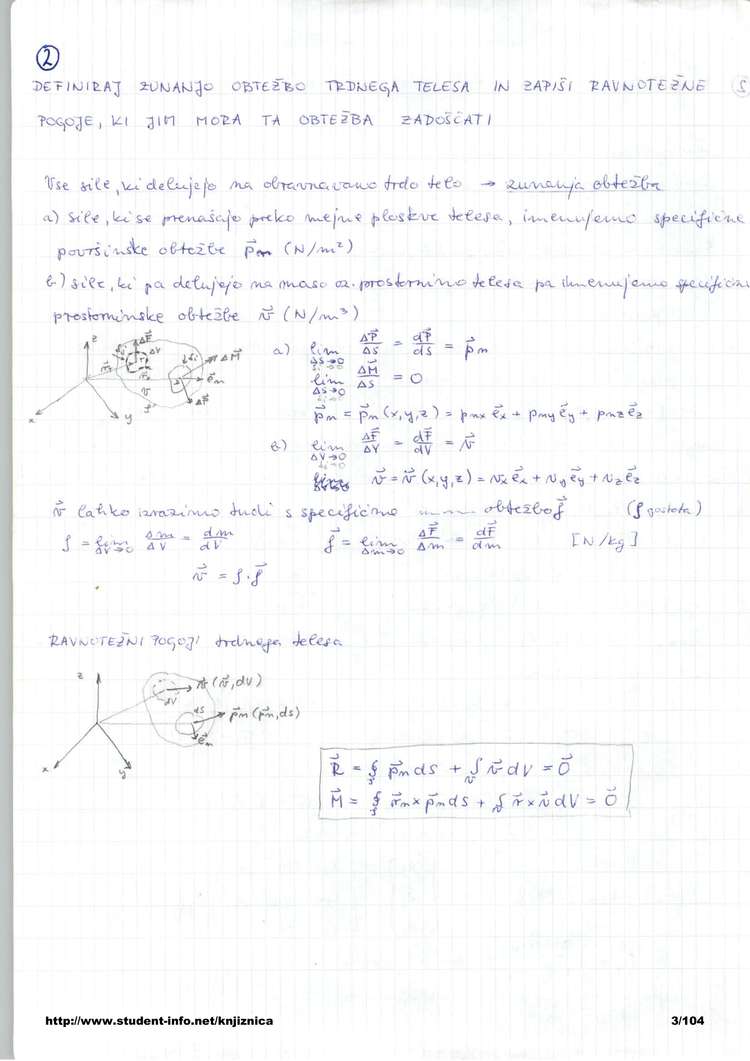 2
DEFINIRAJ ZUNANJO OBTEŽBO TRDNEGA TELESA IN ZAPIŠI RAVNOTEŽNE
POGOJE, KI JIM MORA TA OBTEŽBA ZADOŠČATI
Vse sile, ki delujejo na obravnavano trdo telo → zunanja obtežba
a) sile, ki se prenašajo preko mejne ploskve telesa, imenujemo specifične
površinske obtežbe p⃗n (N/m²)
b) sile, ki pa delujejo na maso oz. prostornino telesa pa imenujemo specifične
prostorninske obtežbe v⃗ (N/m³)
a) lim ΔS→0 ΔP⃗/ΔS = dP⃗/dS = p⃗n
lim ΔS→0 ΔM⃗/ΔS = 0
p⃗n = p⃗n (x,y,z) = pnx e⃗x + pny e⃗y + pnz e⃗z
b) lim ΔV→0 ΔF⃗/ΔV = dF⃗/dV = v⃗
v⃗ = v⃗ (x,y,z) = vx e⃗x + vy e⃗y + vz e⃗z
v⃗ lahko izrazimo tudi s specifično obtežbo f⃗ (ρ gostota)
ρ = lim ΔV→0 Δm/ΔV = dm/dV f⃗ = lim Δm→0 ΔF⃗/Δm = dF⃗/dm [N/kg]
v⃗ = ρ · f⃗
RAVNOTEŽNI POGOJI trdnega telesa
z
v⃗ (v⃗, dV)
dV dS
p⃗n (p⃗n, dS)
e⃗n
x y
R⃗ = ∮s p⃗n dS + ∫v v⃗ dV = 0⃗
M⃗ = ∮s r⃗n × p⃗n dS + ∫v r⃗ × v⃗ dV = 0⃗
http://www.student-info.net/knjiznica 3/104